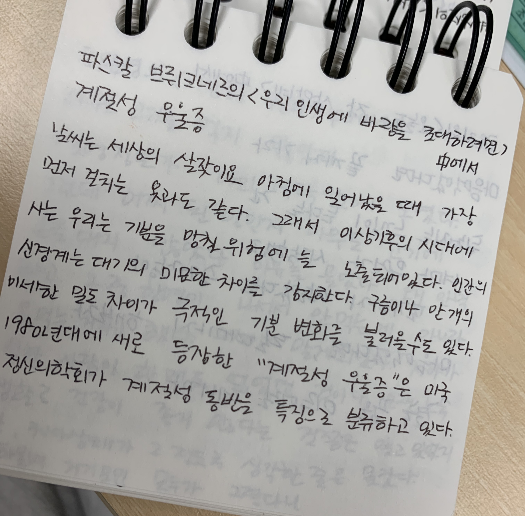 파스칼 브뤼크네르의 <우리 인생에 바람을 초대하려면>
中에서
계절성 우울증
날씨는 세상의 살갗이요 아침에 일어났을 때 가장
먼저 걸치는 옷과도 같다. 그래서 이상기후의 시대에
사는 우리는 기분을 망칠 위험에 늘 노출되어있다. 인간의
신경계는 대기의 미묘한 차이를 감지한다. 구름이나 안개의
미세한 밀도 차이가 극적인 기분 변화를 불러올수도 있다.
1980년대에 새로 등장한 "계절성 우울증"은 미국
정신의학회가 계절성 동반을 특징으로 분류하고 있다.